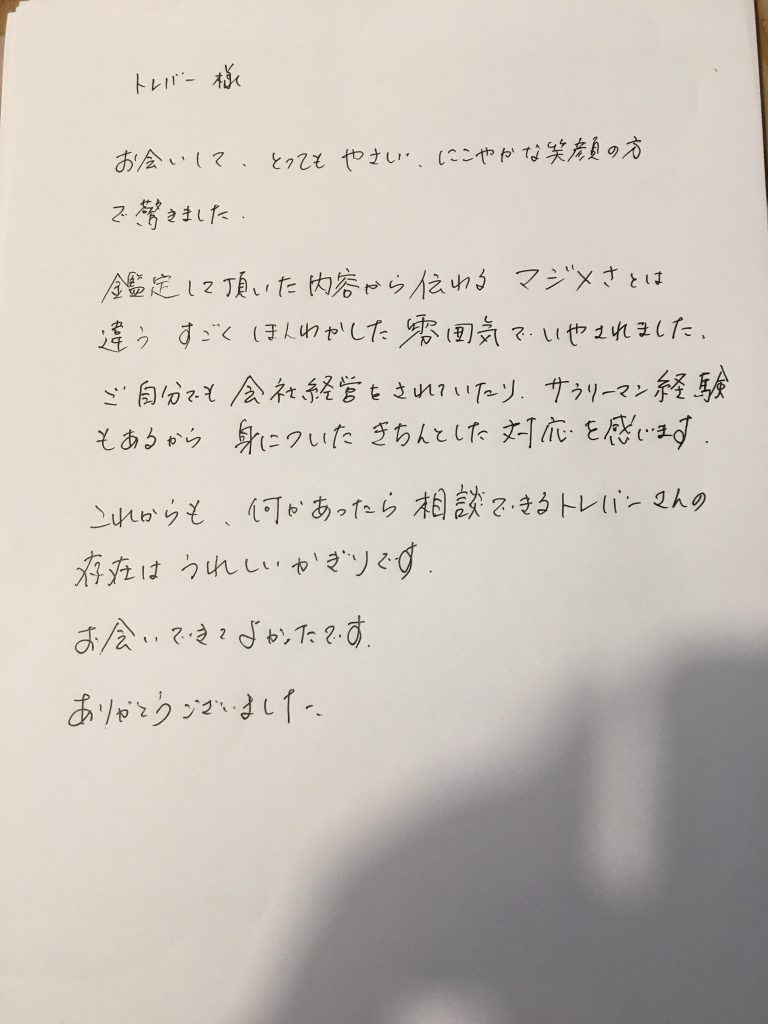 トレバー 様
お会いして、とっても やさしい、にこやかな笑顔の方
で驚きました.
鑑定して頂いた内容から伝わる マジメさとは
違う すごく ほんわかした 雰囲気でいやされました.
ご自分でも 会社経営をされていたり、サラリーマン経験
もあるから 身についた きちんとした 対応を感じます.
これからも、何かあったら 相談できるトレバーさんの
存在は うれしいかぎりです.
お会いできて よかったです.
ありがとうございました.